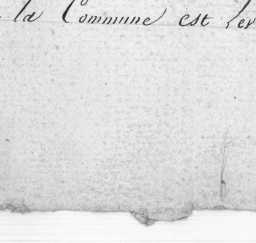 la Commune est